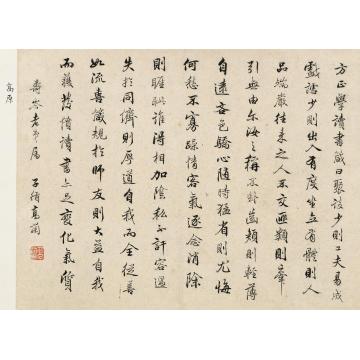 方正學讀書鹹曰聚談少則工夫易成
戲謔少則出入有度坐立有體則人
品端嚴往來之人不交匪類則羣
引無由尔汝之稱不 益頻則輕薄
自遠吝色驕心隨時猛省則尤悔
何愁不寡躁情客氣逐念消除
則睚眦誰得相加陰私不訐容過
失於同儕則厚道自我而全從善
如流喜箴規於師友則大益自我
而獲昔人謂讀書亦足變化氣質
壽岑老弟屬
子綸
高原